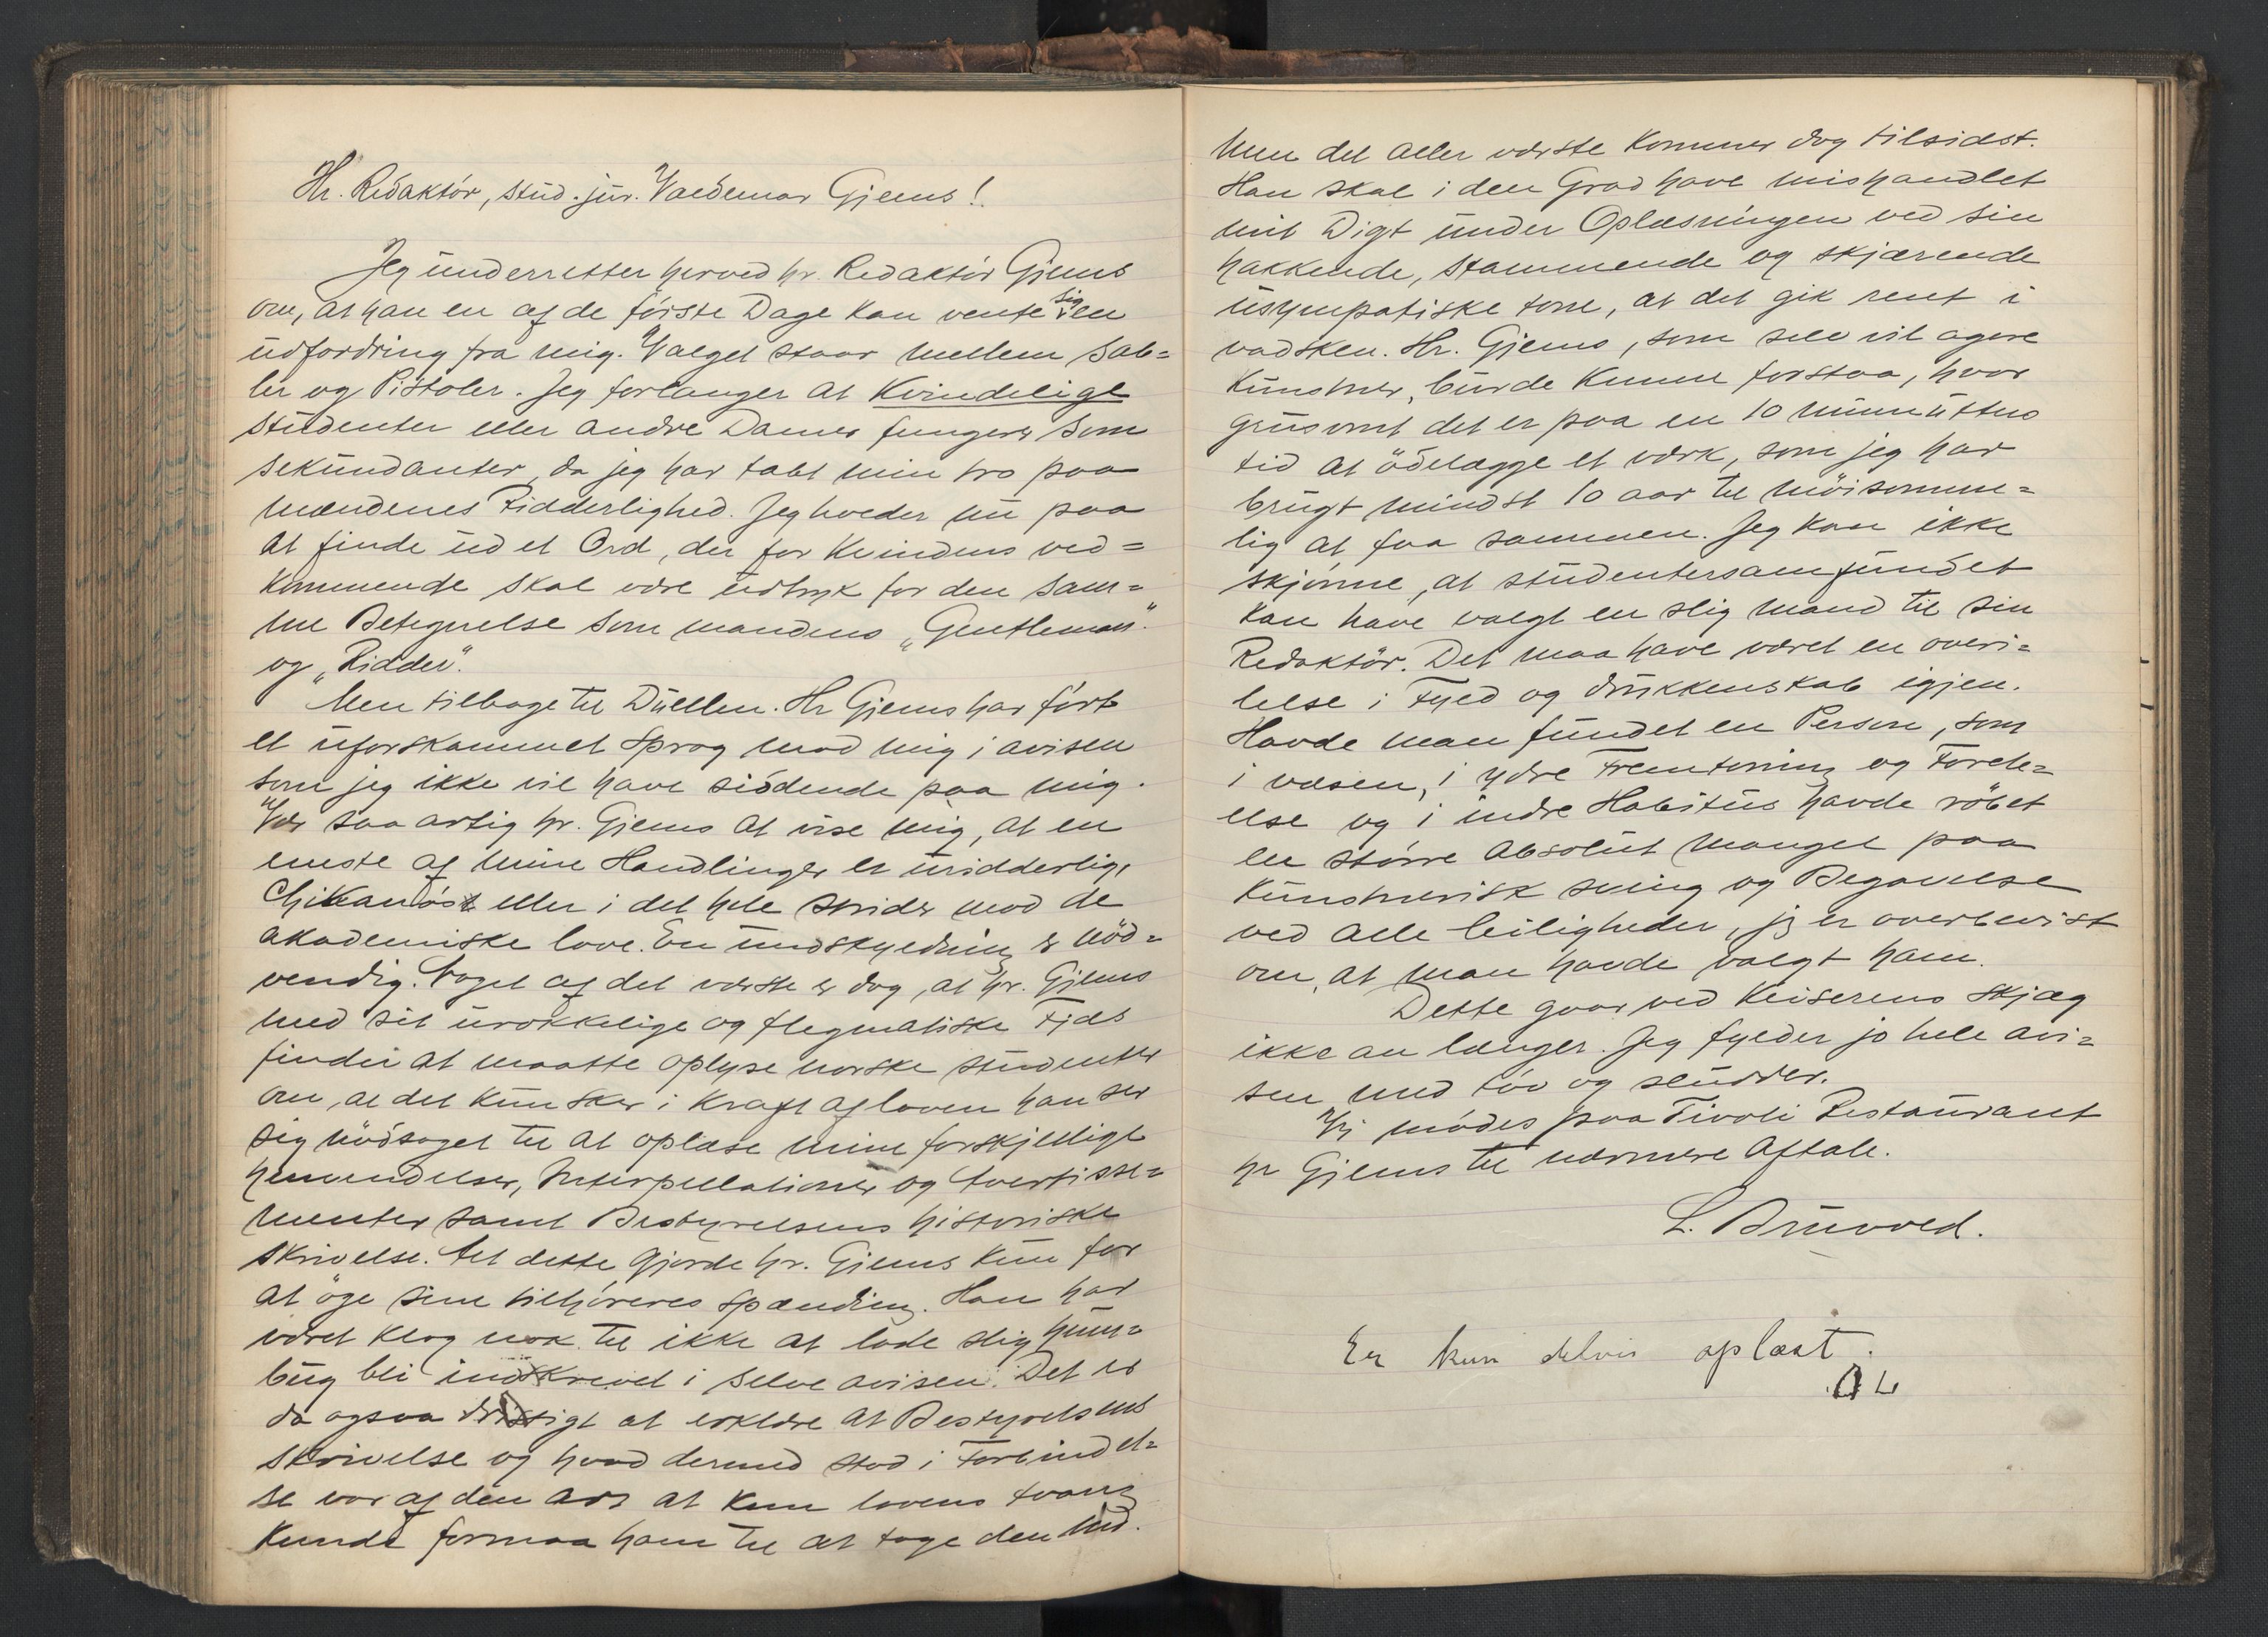 Hr. Redaktör, stud. jur. Valdemar Gjems!
Jeg underretter herved hr. Redaktör Gjems
om, at han en af de förste Dage kan vente sig en
udfordring fra mig. Valget staar mellem Sab=
ler og Pistoler. Jeg forlanger at Kvindelige
Studenter eller andre Damer fungerer som
sekundanter, da jeg har tabt min tro paa
mændenes Ridderlighed. Jeg holder nu paa
at finde ud et Ord, der for Kvindens ved=
kommende skal være udtryk for den sam=
me Betegnelse som mandens "Gentleman"
og "Ridder".
Men tilbage til Duellen. Hr Gjems har fört
et uforskammet Sprog mod mig i avisen
som jeg ikke vil have siddende paa mig.
Vær saa artig hr. Gjems at vise mig, at en
eneste af mine Handlinger er uridderlig,
Chikanöst eller i det hele strider mod de
akademiske love. En undskyldning er nöd=
vendig. Noget af det værste er dog, at hr. Gjems
med sit urokkelige og flegmatiske Fjæs
finder at maatte oplyse norske studenter
om, at det kun sker i Kraft af loven han ser
sig nödsaget til at oplæse mine forskjellige
henvendelser, Interpellationer og Avertisse=
menter samt Bestyrelsens historiske
skrivelse. Alt dette gjorde hr. Gjems kun for
at öge sine tilhöreres Spænding. Han har
været klog nok til ikke at lade slig hum=
bug bli indskrevet i selve avisen. Det er
da ogsaa dristigt at erklære at Bestyrelsens
skrivelse og hvad dermed stod i Forbindel=
se var af den Art at kun lovens tvang
kunde formaa ham til at tage den med.
Men det aller værste kommer dog tilsidst.
Han skal i den Grad have mishandlet
mit Digt under Oplæsningen ved sin
hakkende, stammende og skjærende
usympatiske tone, at det gik rent i
vadsken. Hr. Gjems, som selv vil agere
Kunstner, burde kunne forstaa, hvor
grusomt det er paa en 10 minutters
tid at ödelægge et værk, som jeg har
brugt mindst 10 aar til möisomme=
lig at faa sammen. Jeg kan ikke
skjönne, at studentersamfundet
kan have valgt en slig mand til sin
Redaktör. Det maa have været en overi=
lelse i Fyld og drukkenskab igjen.
Havde man fundet en Person, som
i væsen, i ydre Fremtoning og Forete=
else og i indre Habitus havde röbet
en större absolut mangel paa
kunstnerisk sving og Begavelse
ved alle leiligheder, jeg er overbevist
om, at man havde valgt ham.
Dette gaar ved Keiserens skjæg
ikke an længer. Jeg fylder jo hele avi=
sen med töv og sludder.
Vi mödes paa Tivoli Restaurant
hr Gjems til nærmere Aftale.
L. Bruvold.
Er kun delvis oplæst.